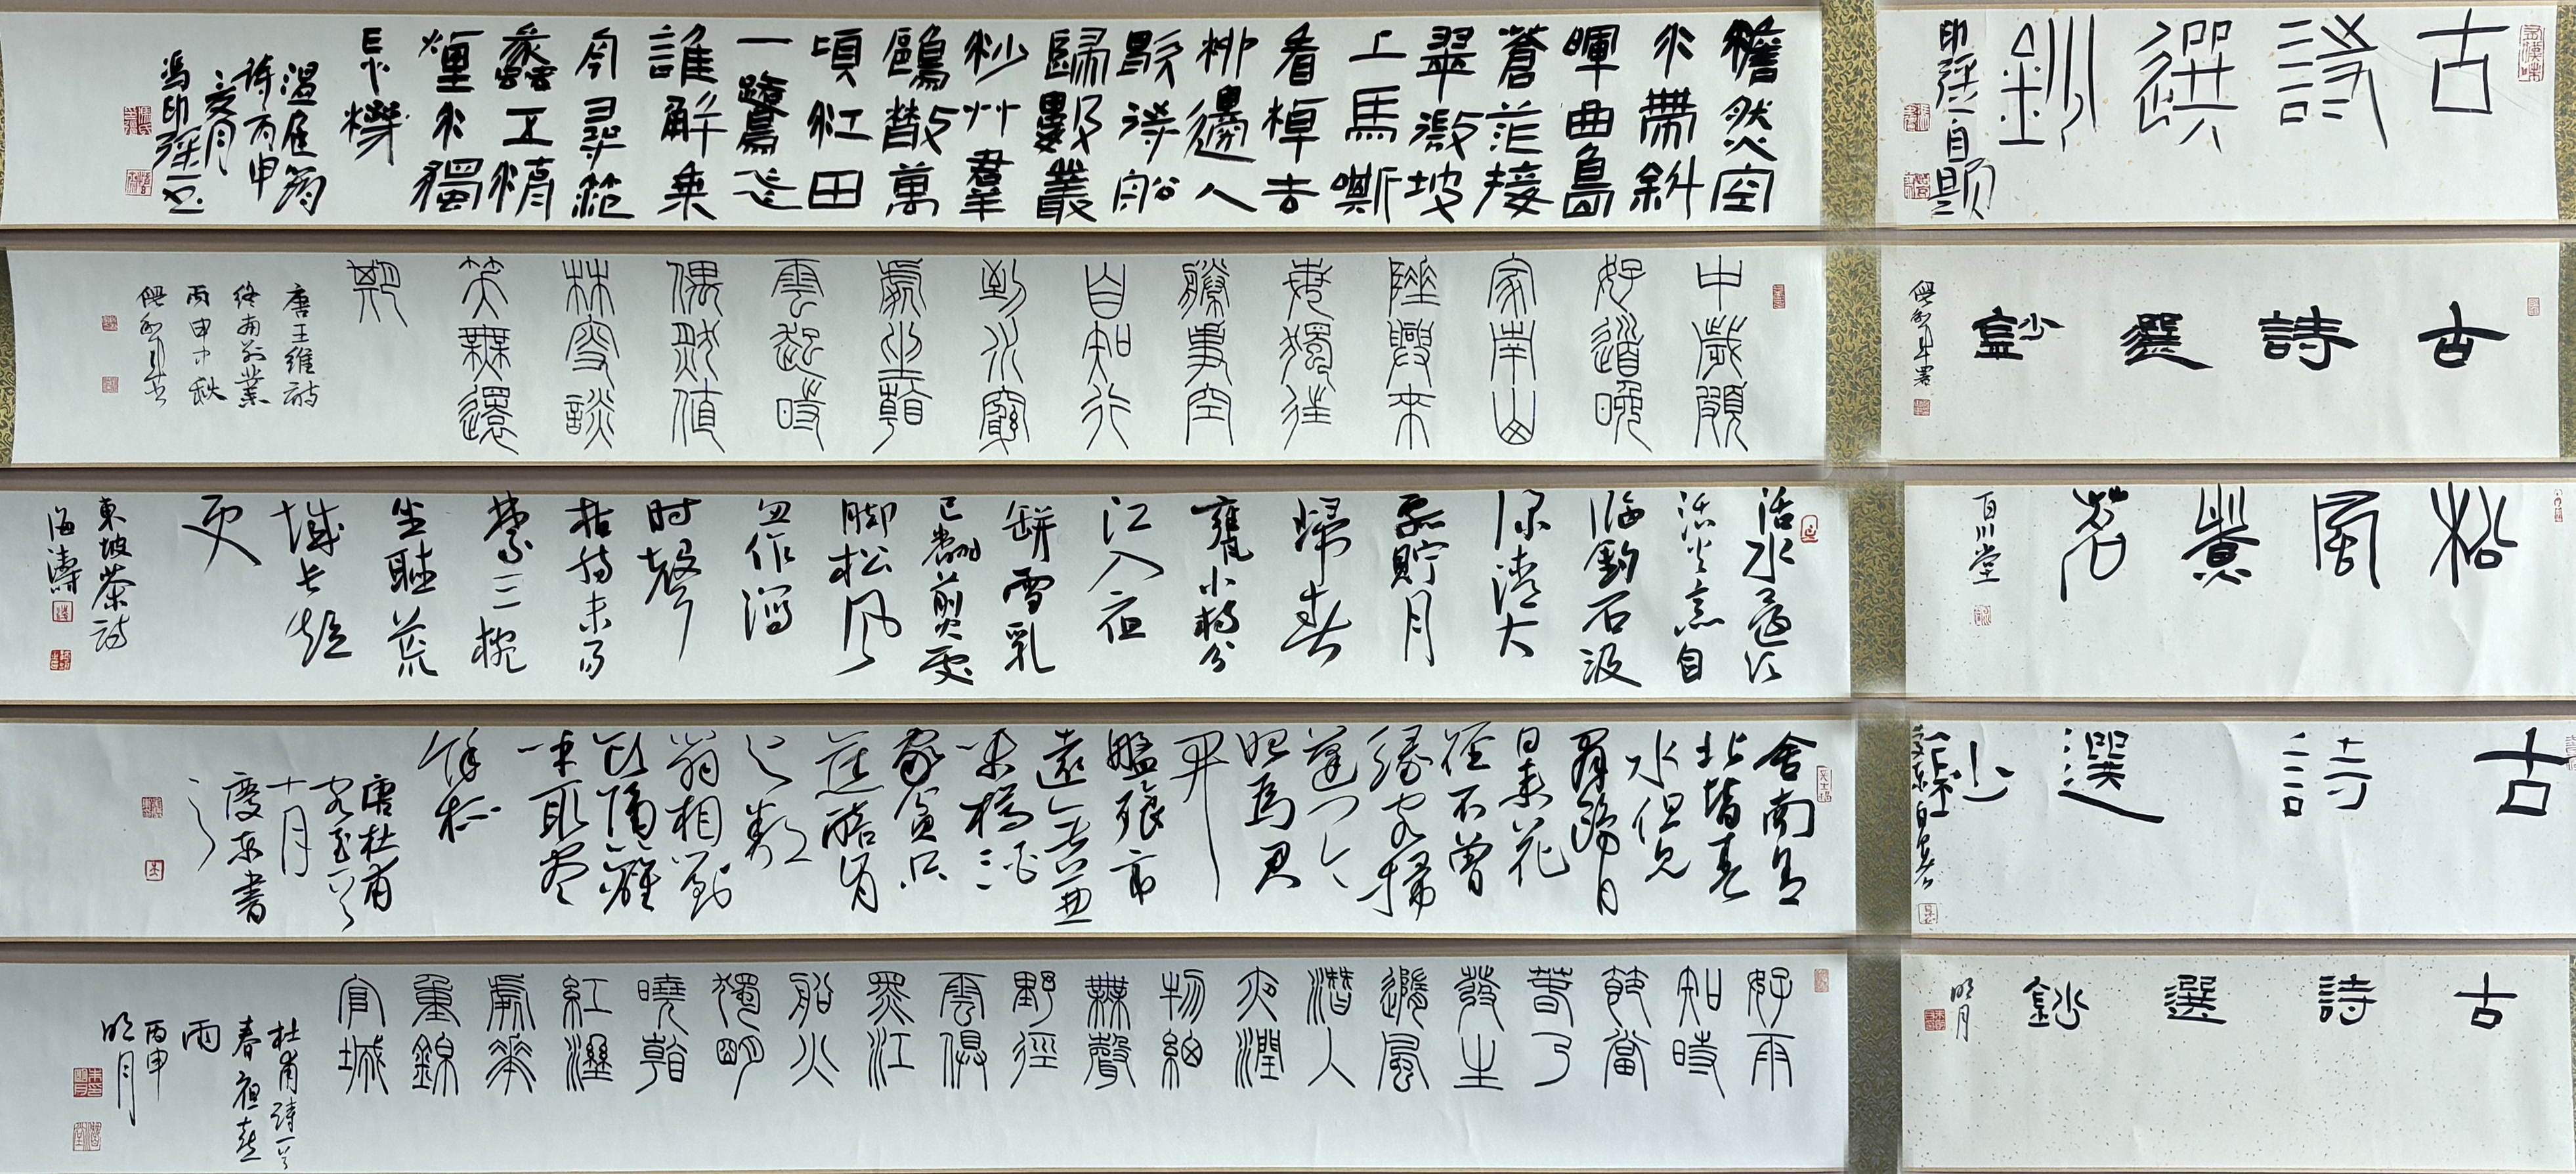 古詩選鈔
印强自題
澹然空
水帶斜
暉曲島
蒼茫接
翠微坡
上馬嘶
看棹去
柳邊人
歇待船
歸數叢
沙艸羣
鷗散萬
頃江田
一鷺飛
誰解乘
舟尋范
蠡五湖
煙水獨
忘機
温庭筠
詩丙申
亥月
馮印强書
古詩選鈔
中歲頗
好道晚
家南山
陲興來
每獨往
勝事空
自知行
到水窮
處坐看
雲起時
偶然值
林叟談
笑無還
期
唐王維詩
終南別業
丙申中秋
松風煮茗
百川堂
活水還須
活火烹自
臨釣石汲
深清大
瓢貯月
歸春
甕小杓分
江入夜
缾雪乳
已翻煎處
腳松風
忽作瀉
时聲
枯腸未易
禁三椀
坐聽荒
城長短
更
東坡茶詩
海濤
古詩選鈔
舍南舍
北皆春
水但見
羣鷗日
日來花
徑不曾
緣客掃
蓬門今
始爲君
開
盤飧市
遠無兼
味樽酒
家貧只
舊醅肯
與鄰
翁相對
飲隔籬
呼取盡
餘杯
唐杜甫
客至一首
十月
慶東書
古詩選鈔
明月
好雨
知時
節當
春乃
發生
隨風
潛人
夜潤
物細
無聲
野徑
雲俱
黑江
船火
獨明
曉看
紅溼
處花
重錦
官城
杜甫詩一首
春夜喜
雨
丙申
明月